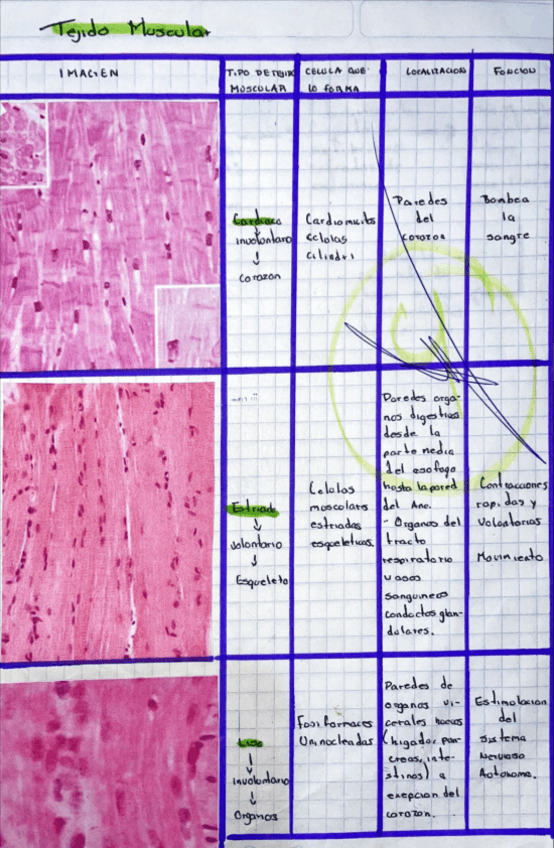 Tejido Muscular
IMAGEN
TIPO DE TEJIDO
MUSCULAR
CELULA QUE
LO FORMA
LOCALIZACION
FUNCION
Cardiaco
↓
involontaro
↓
Corazon
Cardiomiocits
celolas
cilindri
Paredes
del
corazon
Bombea
la
sangre
Estriado
↓
volontario
↓
Esqueleto
Celolas
moscolares
estriadas
esqueleticas.
Paredes orga-
nos digestivos
desde la
parte media
del esofogo
hasta la pared
del Ano.
- Organos del
tracto
respiratorio
vasos
sanguineos
condoctos glan-
dolares.
Contracciones
rapidas y
Volontarias
Movimiento
Liso
↓
involontario
↓
Organos
Fosiformaces
Uninocleadas
Paredes de
organos vi-
cerales hoecos
(higado, pan-
creas, inte-
stinos) a
exepcion del
corazon.
Estimolacion
del
sistema
Nervoso
Autonomo.